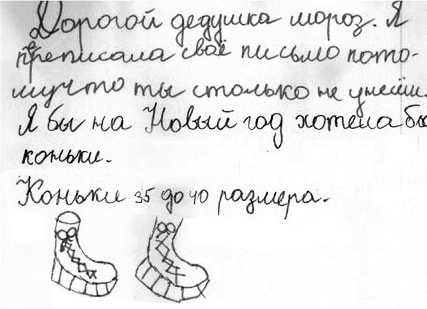 Дорогой дедушка мороз. Я
препписала своё письмо пото-
мучто ты столько не унесёш.
Я бы на Новый год хотела бы
коньки.
Коньки 35 до 40 размера.